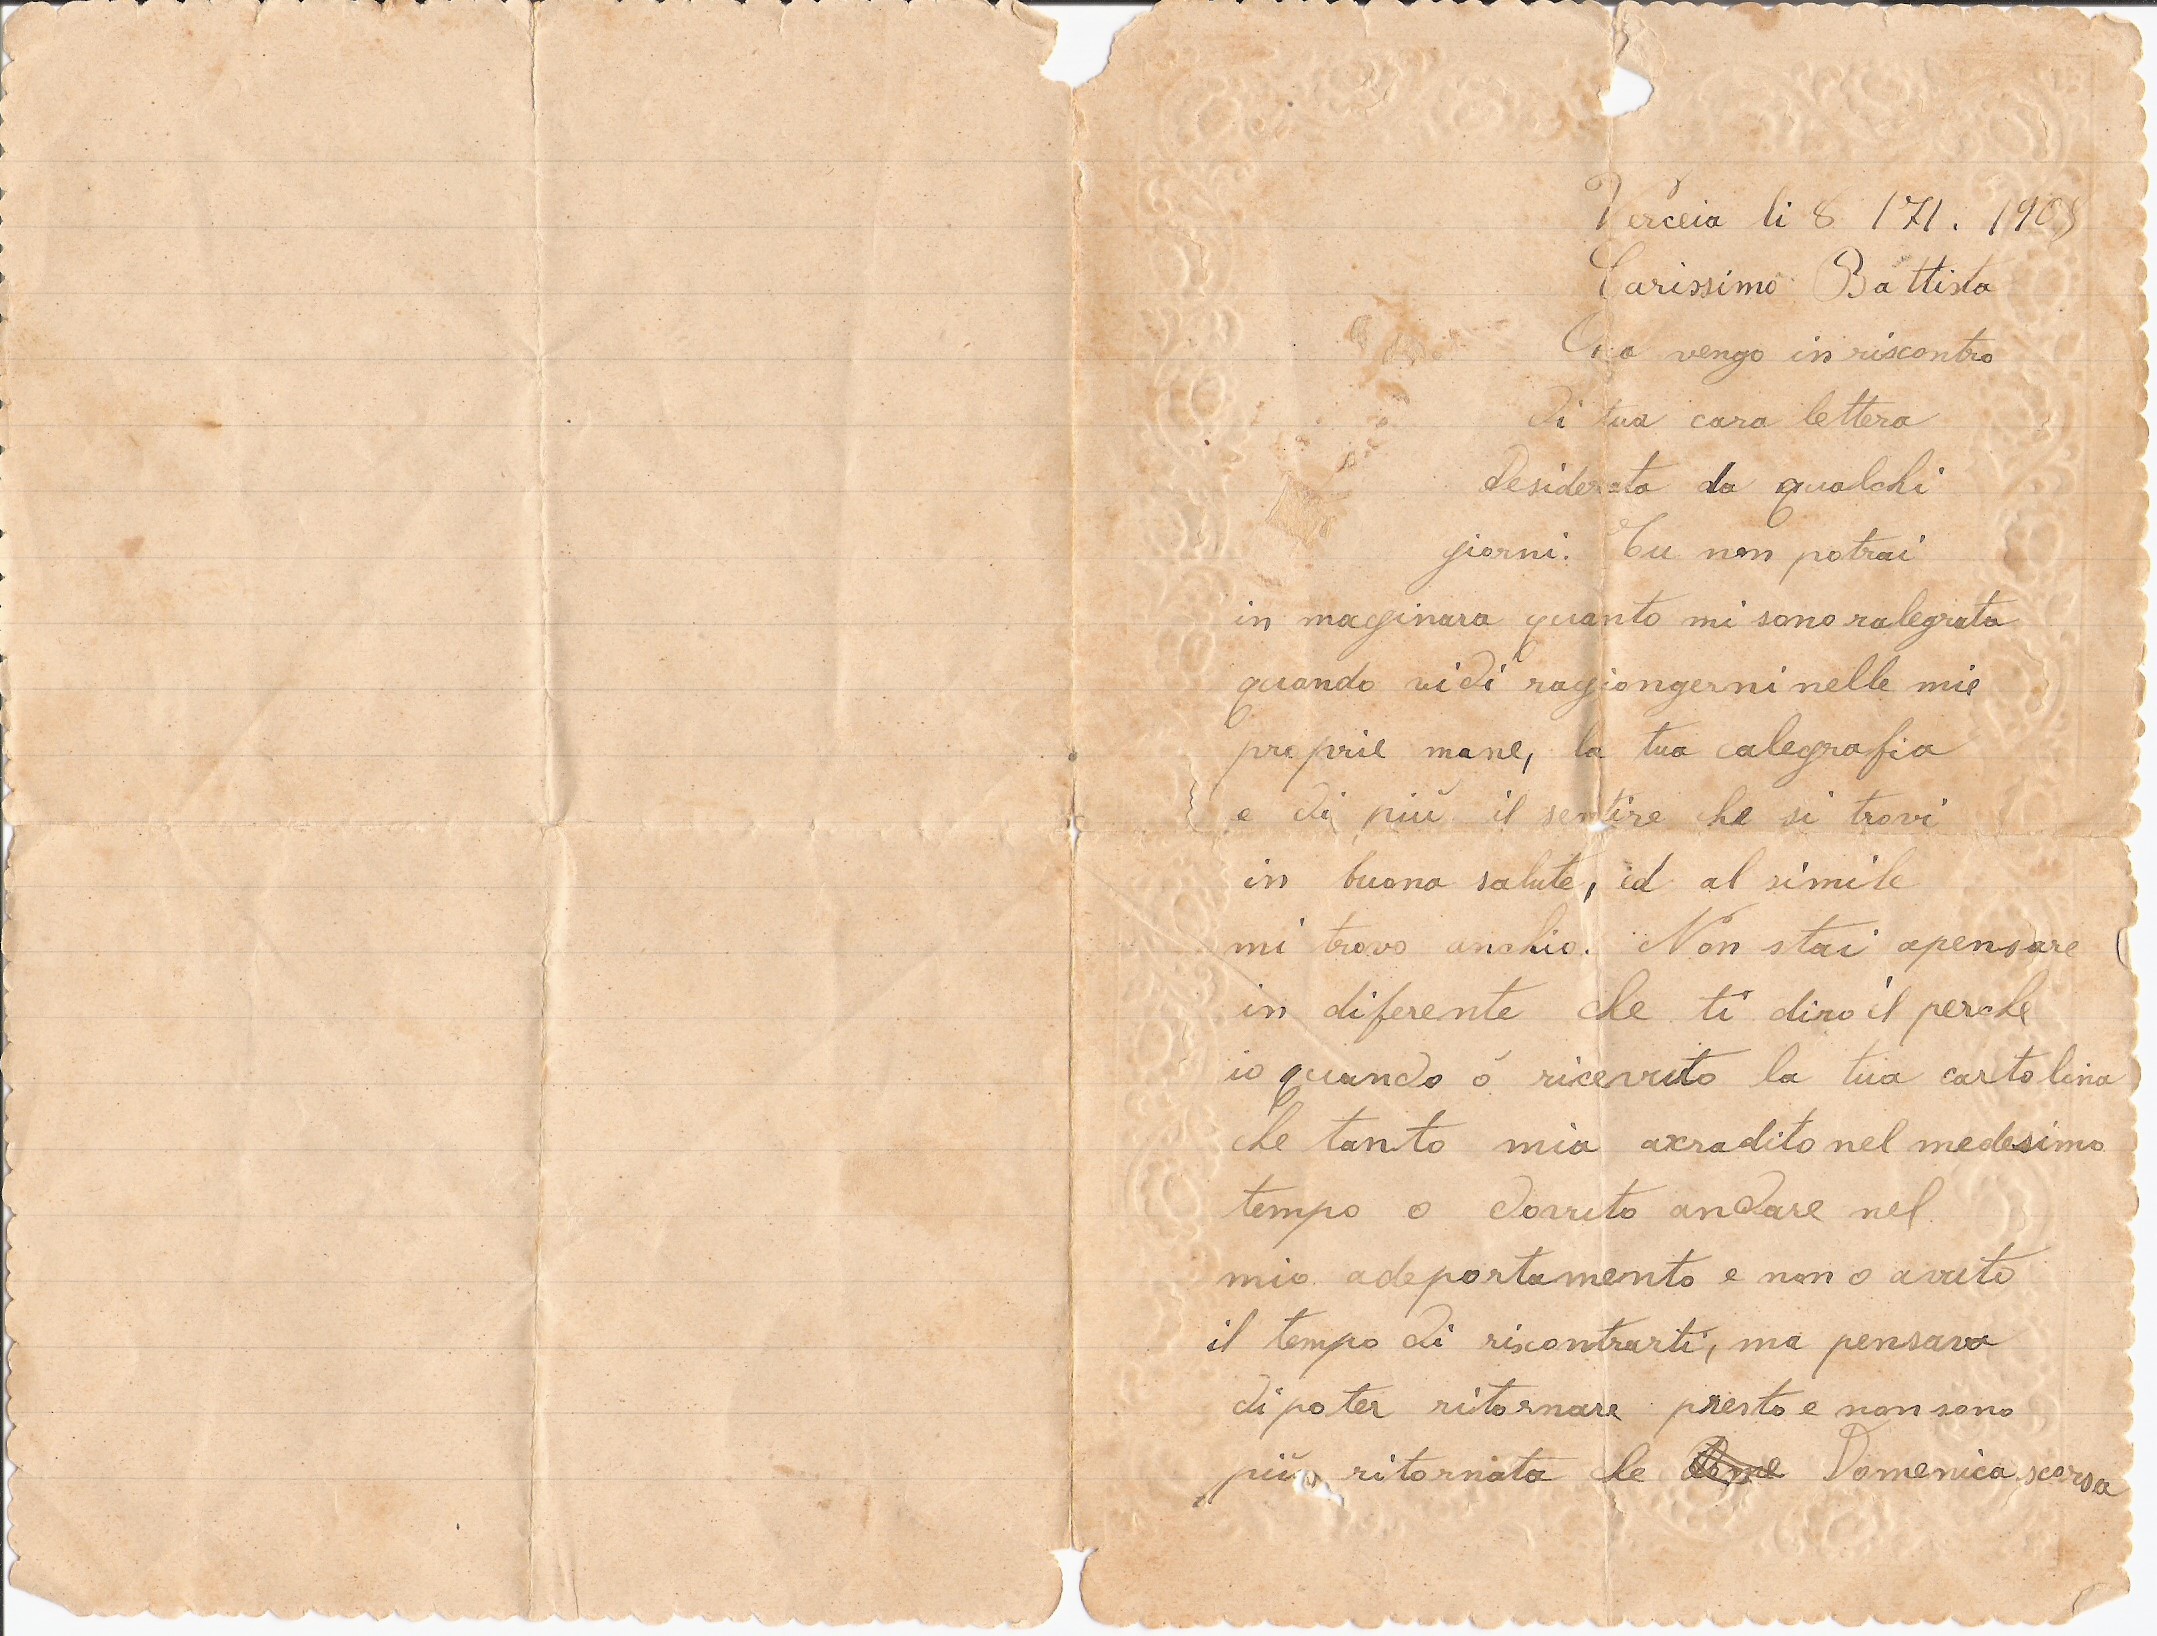 Verceia li 8 /71. 1905
Carissimo Battista
Ora vengo in riscontro
di tua cara lettera
desiderata da qualchi
giorni. Tu non potrai
in maginara quanto mi sono ralegrata
quando vidi ragiongerni nelle mie
proprie mane, la tua calegrafia
e di più il sentire che si trovi
in buona salute, id al simile
mi trovo anchio. Non stai apensare
in diferente che ti diro il perche
io quando ó ricevuto la tua cartolina
che tanto mia axradito nel medesimo
tempo o dovuto andare nel
mio adeportamento e non o avuto
il tempo di riscontrarti, ma pensava
di poter ritornare presto e non sono
più ritornata che Domenica scorsa